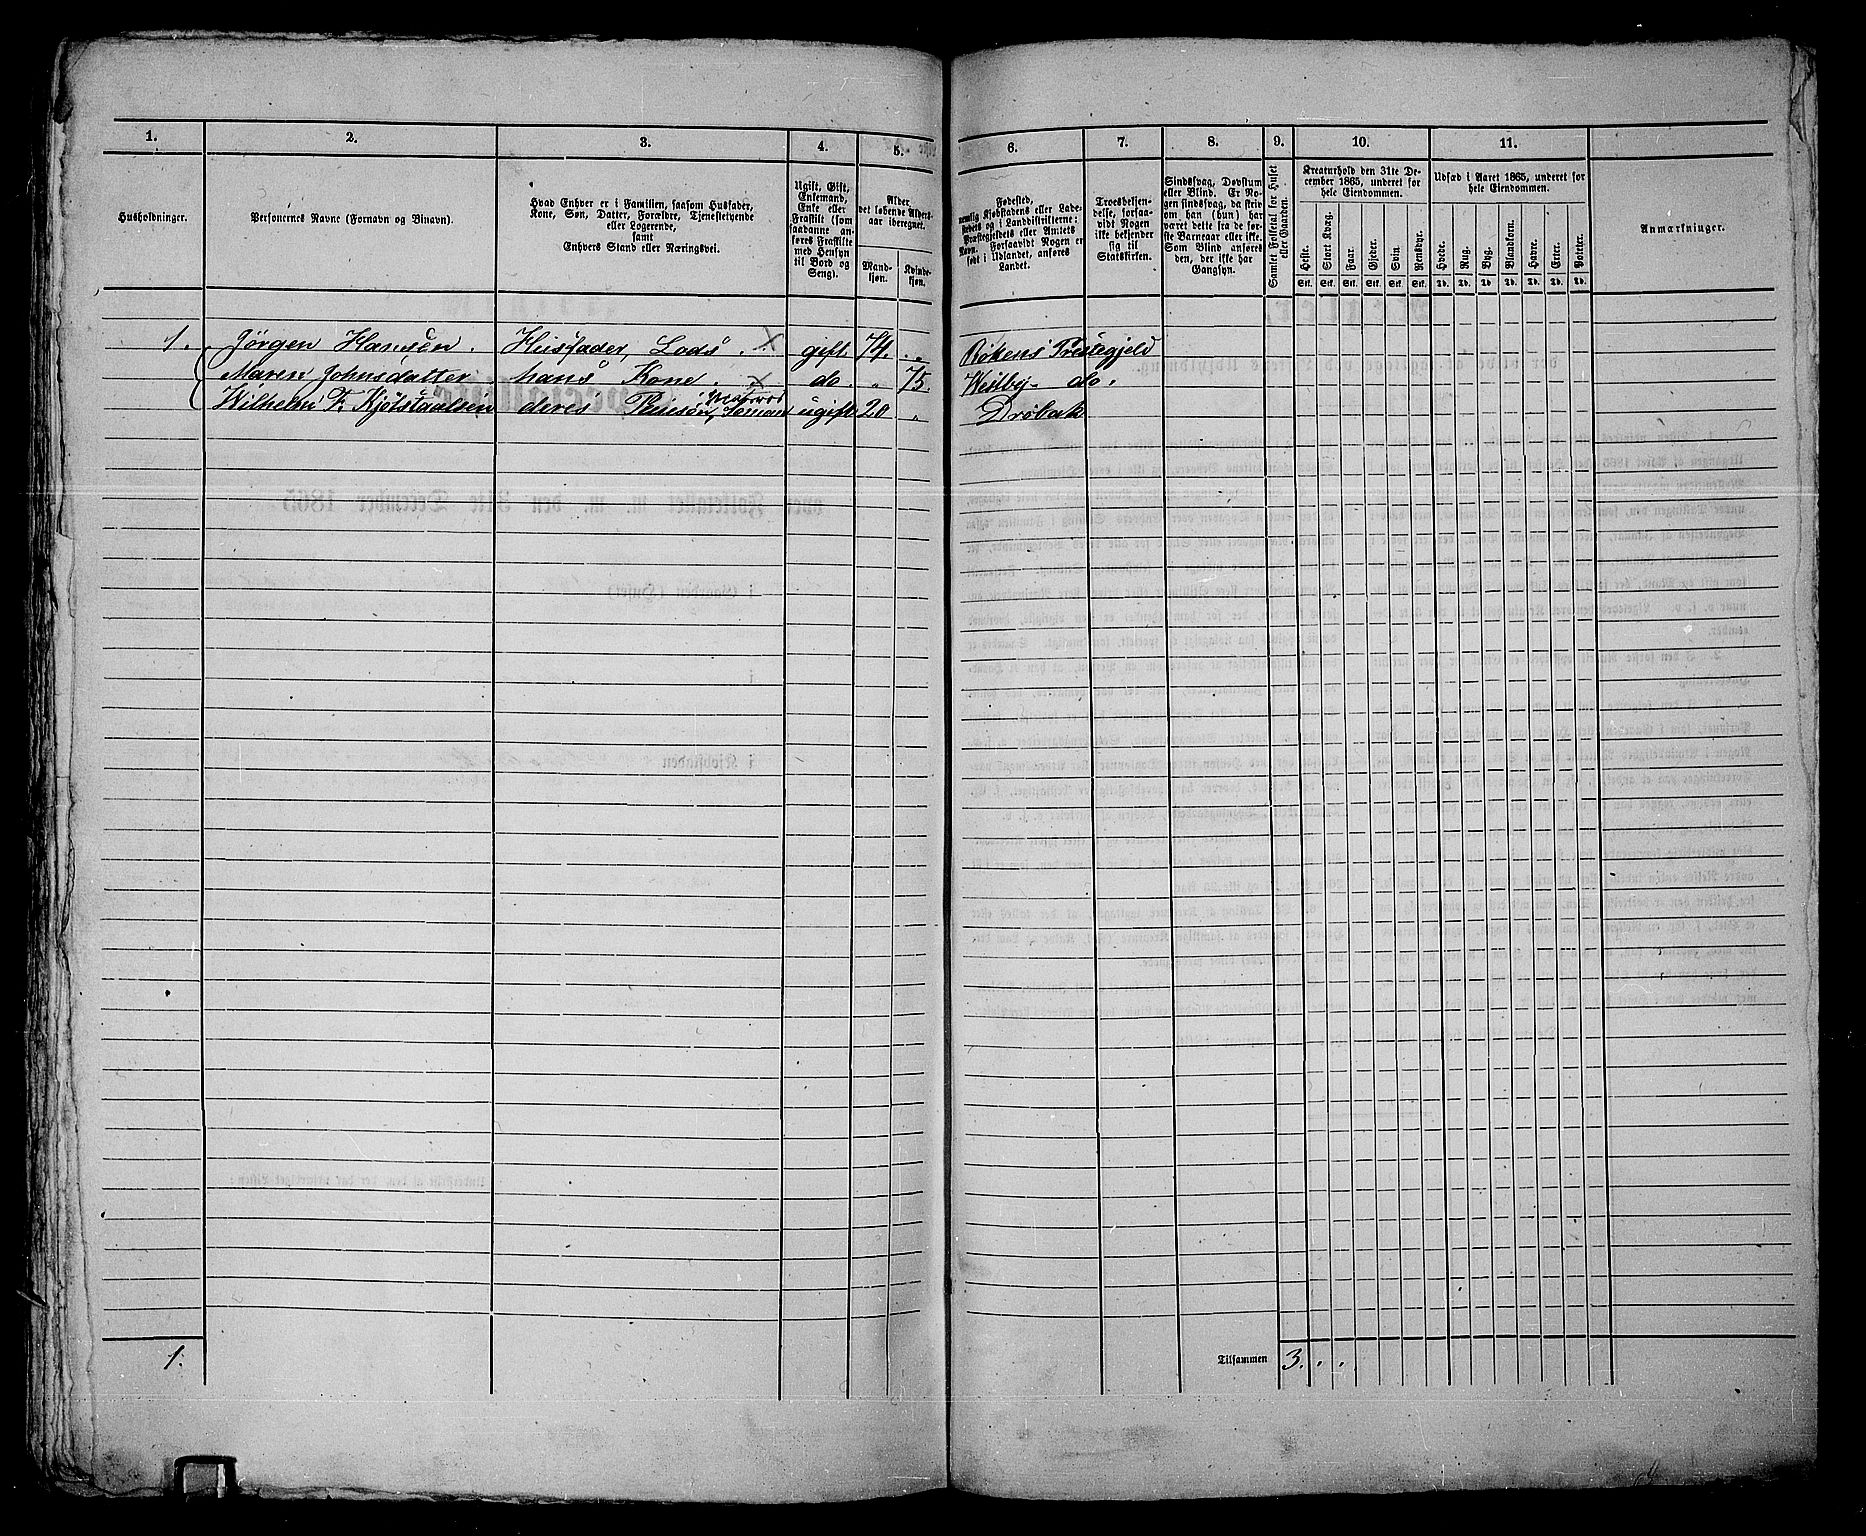 1. 2. 3. 4. 5. 6. 7. 8. 9. 10. 11.
Husholdninger.
Personernes Navne (Fornavn og Binavn).
Hvad Enhver er i Familien, saasom Husfader,
Kone, Søn, Datter, Forældre, Tjenestetyende
eller Logerende,
samt
Enhvers Stand eller Næringsvei.
Ugift, Gift,
Enkemand,
Enke eller
Fraskilt (som
saadanne an-
føres Fraskilte
med Hensyn
til Bord og
Seng).
Alder,
det løbende Alders-
aar iberegnet.
Mand-
kjøn.
Kvinde-
kjøn.
Fødested,
nemlig Kjøbstadens eller Lade-
stedets og i Landdistrikterne:
Præstegjeldets eller Amtets
Navn. Forsaavidt Nogen er
født i Udlandet, anføres
Landet.
Troesbekjen-
delse, forsaa-
vidt Nogen
ikke bekjender
sig til
Statskirken.
Sindssvag, Døvstum
eller Blind. Er No-
gen sindssvag, da skriv
om han (hun) har
været dette fra de før-
ste Barneaar eller ikke.
Som Blind anføres
den, der ikke har
Gangsyn.
Samlet Folketal for Huset
eller Gaarden.
Kreaturhold den 31te De-
cember 1865, underet for
hele Eiendommen.
Heste. Stort Kvæg. Faar. Gjeder. Svin. Rensdyr.
Stk. Stk. Stk. Stk. Stk. Stk.
Udsæd i Aaret 1865, underet for
hele Eiendommen.
Hvede. Rug. Byg. Blandkorn. Havre. Erter. Poteter.
Td. Td. Td. Td. Td. Td. Td.
Anmærkninger.
1. Jörgen Hansen. Husfader, Lods. gift. 74. „ Rökens Prestegjeld
Maren Johnsdatter. hans Kone. do. „ 75. Westby do.
Matros
Wilhelm F. Kjölstadlsen deres Pleiesön, ugift 20 „ Dröbak
1. Tilsammen 3. . . .